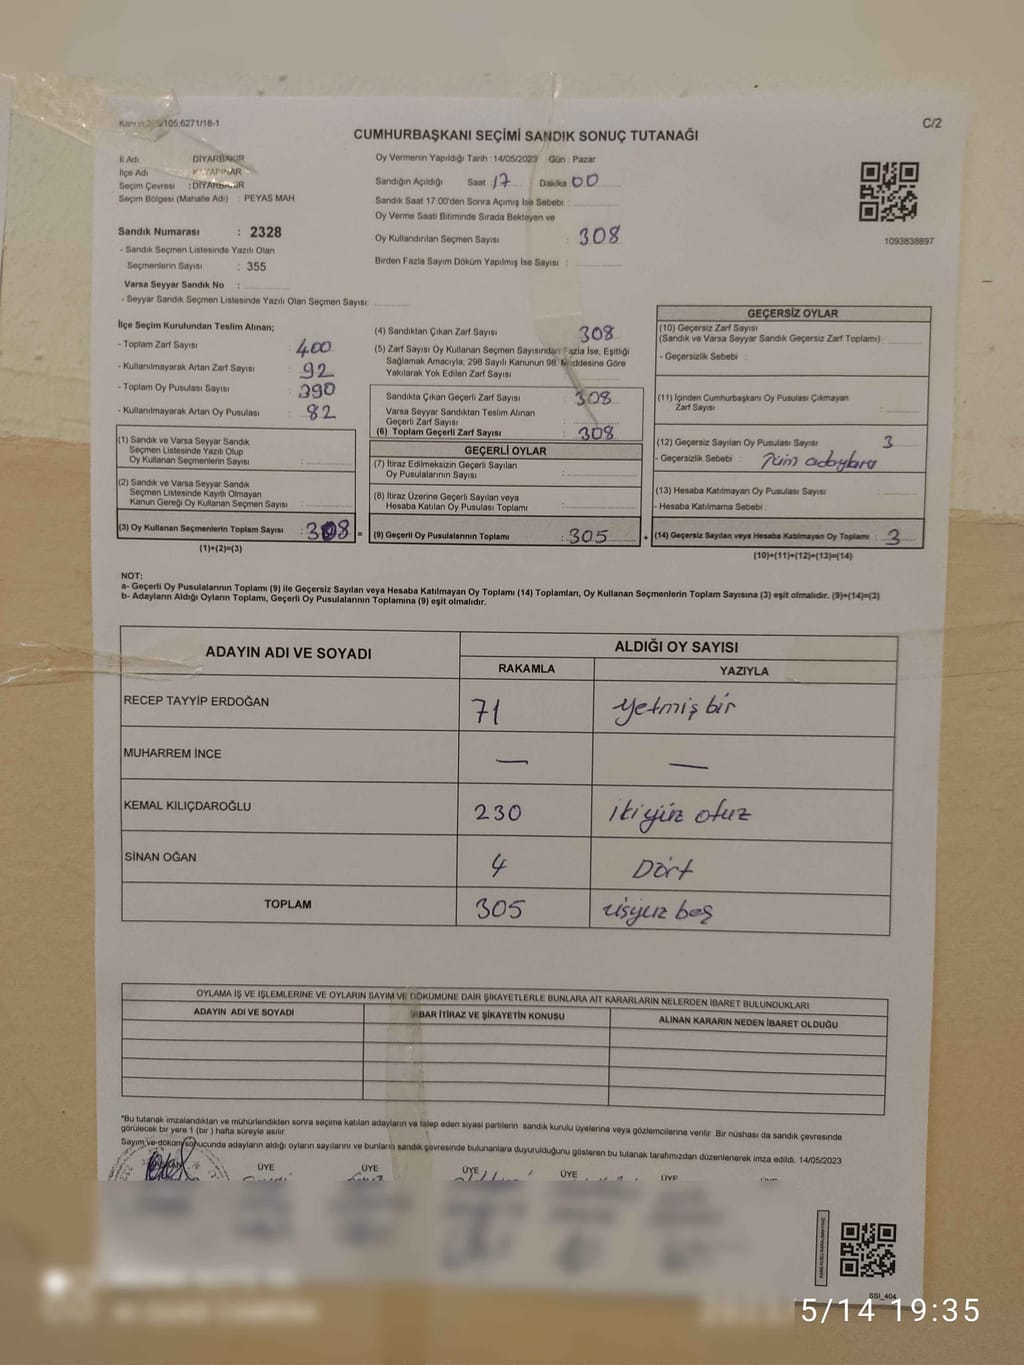 105.6271/18-1
C/2
CUMHURBAŞKANI SEÇİMİ SANDIK SONUÇ TUTANAĞI
İl Adı DİYARBAKIR
İlçe Adı : KAYAPINAR
Seçim Çevresi : DİYARBAKIR
Seçim Bölgesi (Mahalle Adı) : PEYAS MAH
Sandık Numarası : 2328
- Sandık Seçmen Listesinde Yazılı Olan
Seçmenlerin Sayısı : 355
Varsa Seyyar Sandık No :
- Seyyar Sandık Seçmen Listesinde Yazılı Olan Seçmen Sayısı:
Oy Vermenin Yapıldığı Tarih : 14/05/2023 Gün : Pazar
Sandığın Açıldığı Saat 17 Dakika : 00
Sandık Saat 17.00'den Sonra Açımış İse Sebebi :
Oy Verme Saati Bitiminde Sırada Bekleyen ve
Oy Kullandırılan Seçmen Sayısı : 308
Birden Fazla Sayım Döküm Yapılmış İse Sayısı :
1093838897
İlçe Seçim Kurulundan Teslim Alınan;
- Toplam Zarf Sayısı : 400
- Kullanılmayarak Artan Zarf Sayısı : 92
- Toplam Oy Pusulası Sayısı : 390
- Kullanılmayarak Artan Oy Pusulası : 82
(1) Sandık ve Varsa Seyyar Sandık
Seçmen Listesinde Yazılı Olup
Oy Kullanan Seçmenlerin Sayısı :
(2) Sandık ve Varsa Seyyar Sandık
Seçmen Listesinde Kayıtlı Olmayan
Kanun Gereği Oy Kullanan Seçmen Sayısı :
(3) Oy Kullanan Seçmenlerin Toplam Sayısı : 308 =
(1)+(2)=(3)
(4) Sandıktan Çıkan Zarf Sayısı 308
(5) Zarf Sayısı Oy Kullanan Seçmen Sayısından Fazla İse, Eşitliği
Sağlamak Amacıyla; 298 Sayılı Kanunun 98. Maddesine Göre
Yakılarak Yok Edilen Zarf Sayısı
Sandıkta Çıkan Geçerli Zarf Sayısı : 308
Varsa Seyyar Sandıktan Teslim Alınan
Geçerli Zarf Sayısı :
(6) Toplam Geçerli Zarf Sayısı : 308
GEÇERLİ OYLAR
(7) İtiraz Edilmeksizin Geçerli Sayılan
Oy Pusulalarının Sayısı :
(8) İtiraz Üzerine Geçerli Sayılan veya
Hesaba Katılan Oy Pusulası Toplamı :
(9) Geçerli Oy Pusulalarının Toplamı : 305 +
GEÇERSİZ OYLAR
(10) Geçersiz Zarf Sayısı
(Sandık ve Varsa Seyyar Sandık Geçersiz Zarf Toplamı) :
- Geçersizlik Sebebi :
(11) İçinden Cumhurbaşkanı Oy Pusulası Çıkmayan
Zarf Sayısı :
(12) Geçersiz Sayılan Oy Pusulası Sayısı : 3
- Geçersizlik Sebebi : Tüm adaylara
(13) Hesaba Katılmayan Oy Pusulası Sayısı :
- Hesaba Katılmama Sebebi :
(14) Geçersiz Sayılan veya Hesaba Katılmayan Oy Toplamı : 3
(10)+(11)+(12)+(13)=(14)
NOT:
a- Geçerli Oy Pusulalarının Toplamı (9) ile Geçersiz Sayılan veya Hesaba Katılmayan Oy Toplamı (14) Toplamları, Oy Kullanan Seçmenlerin Toplam Sayısına (3) eşit olmalıdır. (9)+(14)=(3)
b- Adayların Aldığı Oyların Toplamı, Geçerli Oy Pusulalarının Toplamına (9) eşit olmalıdır.
ADAYIN ADI VE SOYADI ALDIĞI OY SAYISI
RAKAMLA YAZIYLA
RECEP TAYYİP ERDOĞAN 71 yetmiş bir
MUHARREM İNCE — —
KEMAL KILIÇDAROĞLU 230 ikiyüz otuz
SİNAN OĞAN 4 Dört
TOPLAM 305 üçyüz beş
OYLAMA İŞ VE İŞLEMLERİNE VE OYLARIN SAYIM VE DÖKÜMÜNE DAİR ŞİKAYETLERLE BUNLARA AİT KARARLARIN NELERDEN İBARET BULUNDUKLARI
ADAYIN ADI VE SOYADI İHBAR İTİRAZ VE ŞİKAYETİN KONUSU ALINAN KARARIN NEDEN İBARET OLDUĞU
*Bu tutanak imzalandıktan ve mühürlendikten sonra seçime katılan adayların ve talep eden siyasi partilerin sandık kurulu üyelerine veya gözlemcilerine verilir. Bir nüshası da sandık çevresinde
görülecek bir yere 1 (bir ) hafta süreyle asılır.
Sayım ve döküm sonucunda adayların aldığı oyların sayılarını ve bunların sandık çevresinde bulunanlara duyurulduğunu gösteren bu tutanak tarafımızdan düzenlenerek imza edildi. 14/05/2023
ÜYE ÜYE ÜYE ÜYE ÜYE
SSİ_404
5/14 19:35